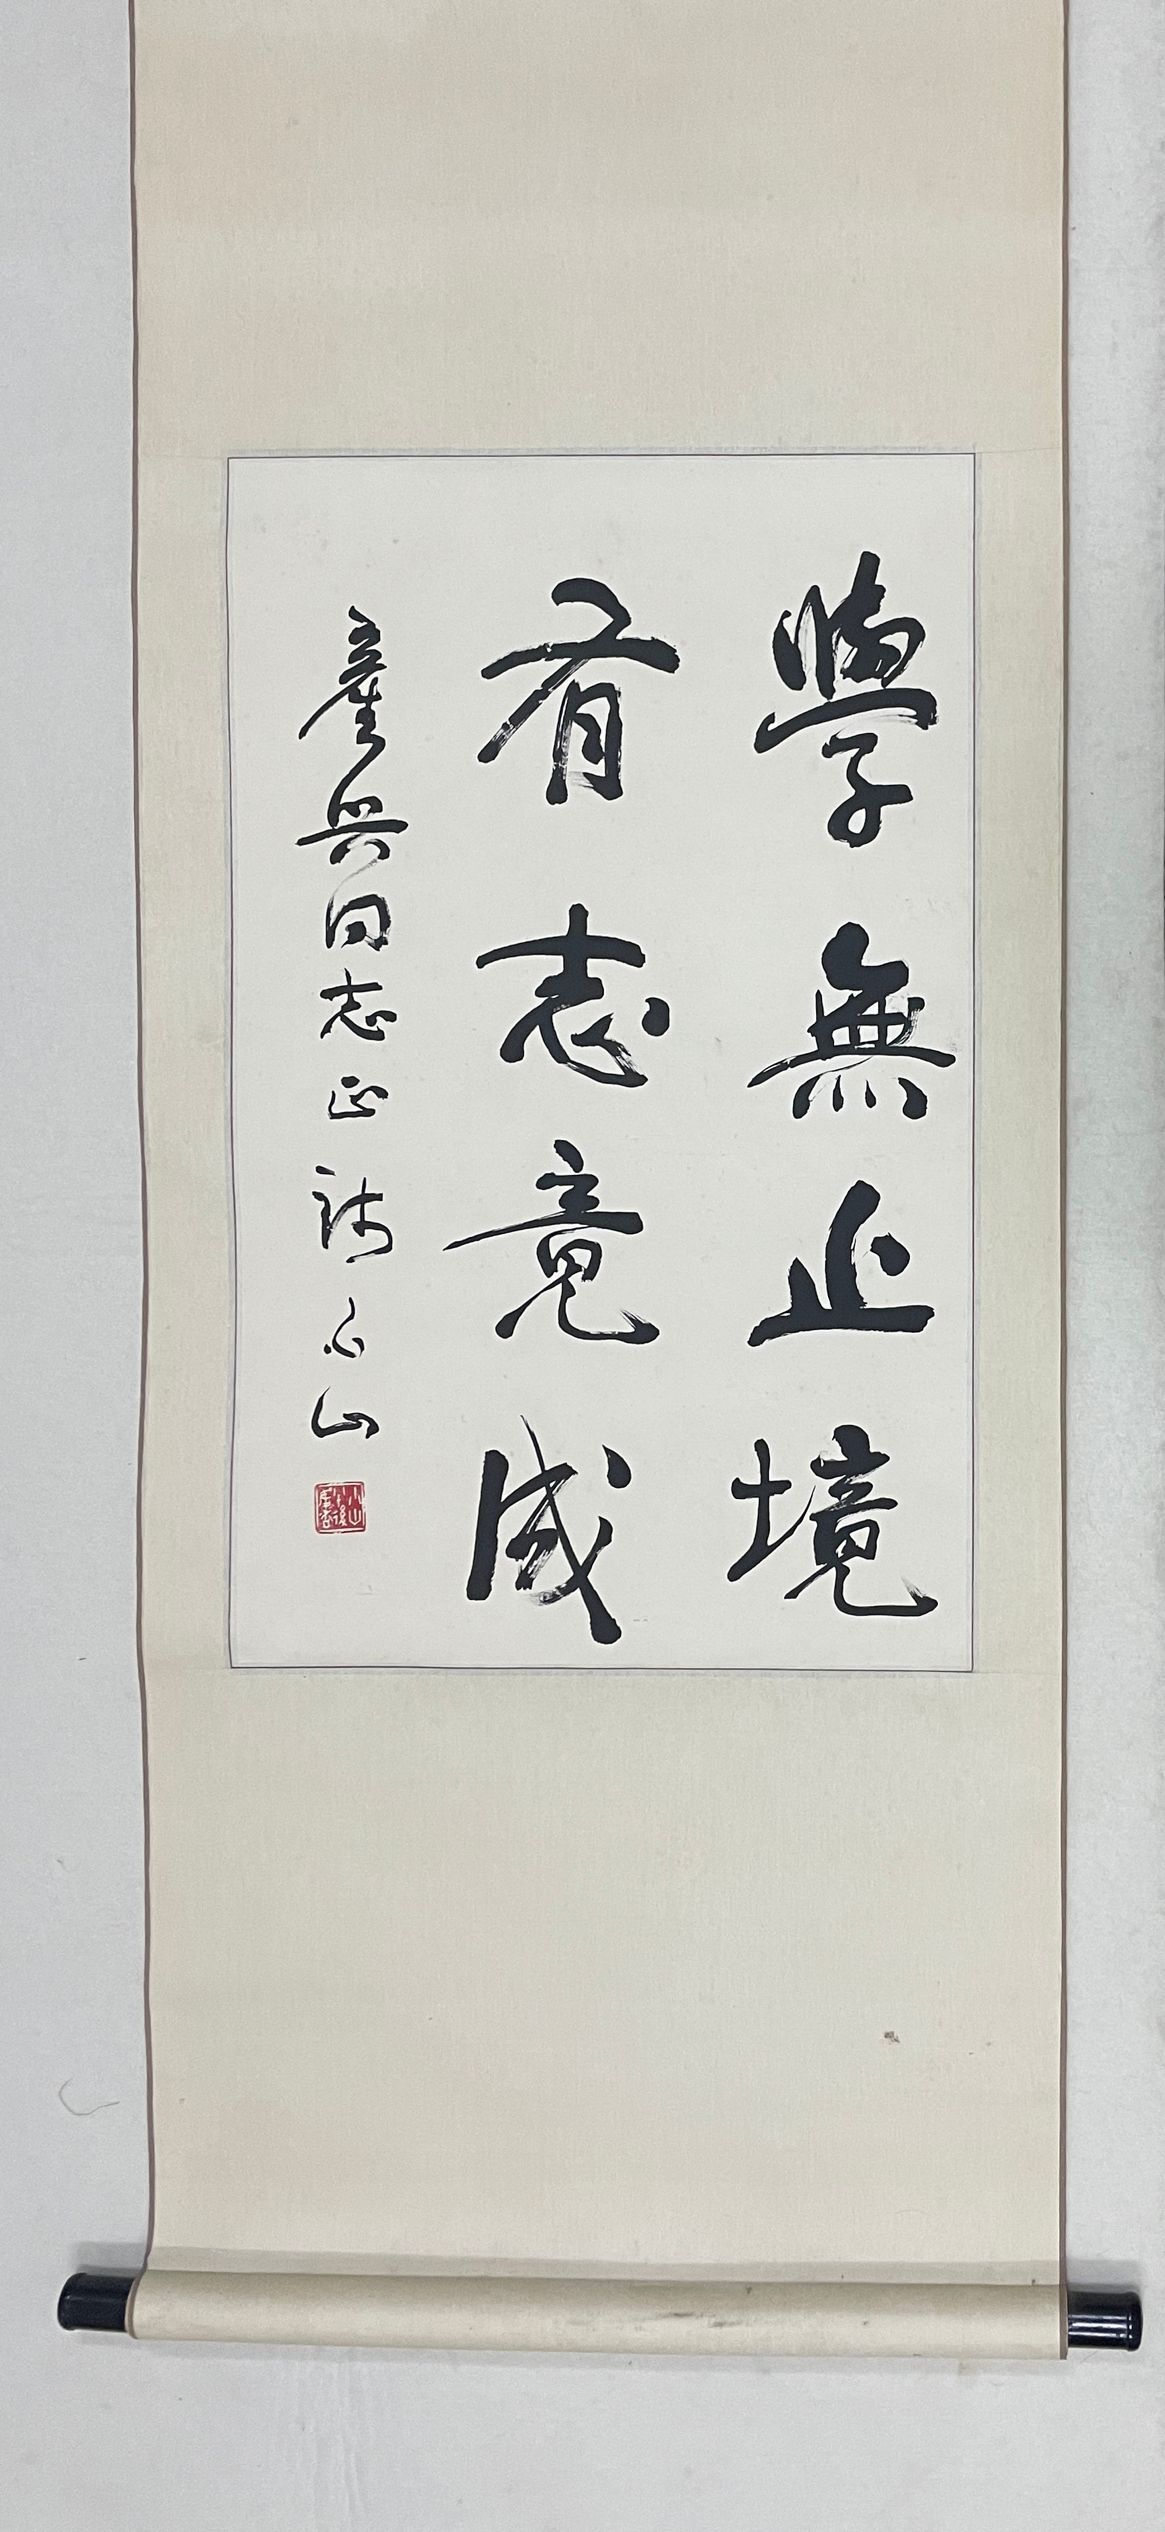 學無止境
有志竟成
兴同志正 山